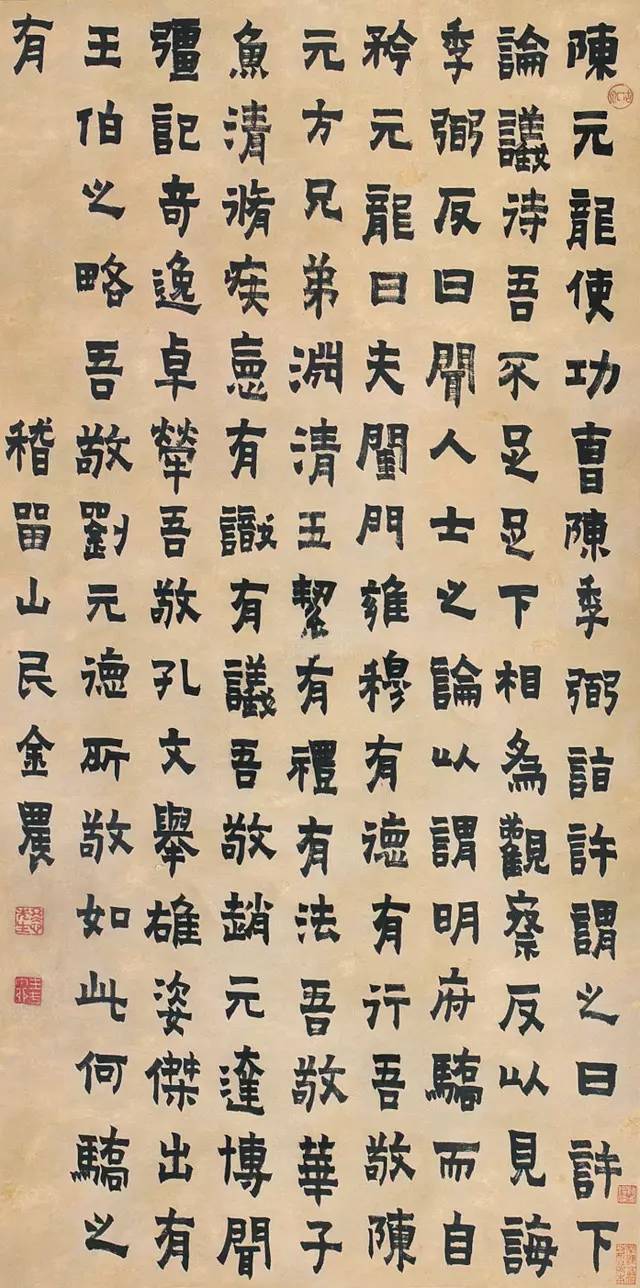 陳元龍使功曹陳季弼詣許謂之曰許下
論議待吾不足足下相為觀察反以見誨
季弼反曰聞人士之論以謂明府驕而自
矜元龍曰夫閨門雍穆有德有行吾敬陳
元方兄弟淵清玉絜有禮有法吾敬華子
魚清脩疾惡有識有議吾敬趙元達博聞
彊記奇逸卓犖吾敬孔文舉雄姿傑出有
王伯之略吾敬劉元德所敬如此何驕之
有 稽留山民金農